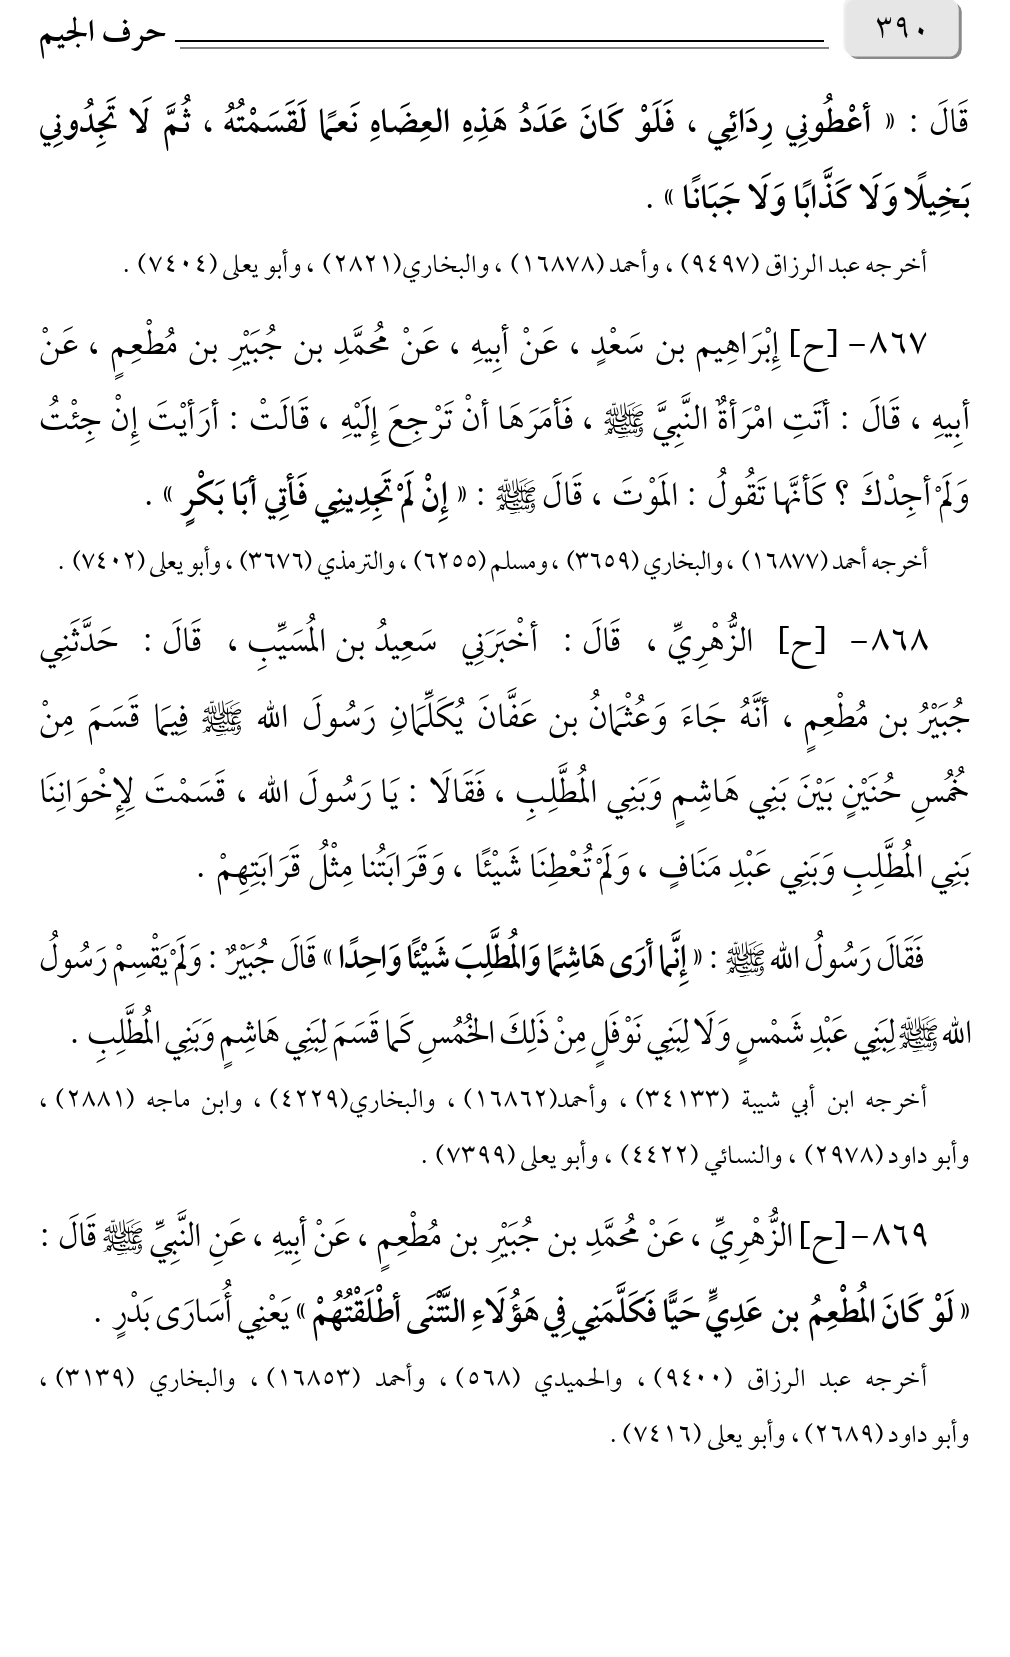 ٣٩٠
حرف الجيم
قَالَ : « أعْطُونِي رِدَائِي ، فَلَوْ كَانَ عَدَدُ هَذِهِ العِضَاهِ نَعَمًا لَقَسَمْتُهُ ، ثُمَّ لَا تَجِدُونِي
بَخِيلًا وَلَا كَذَّابًا وَلَا جَبَانًا » .
أخرجه عبد الرزاق (٩٤٩٧) ، وأحمد (١٦٨٧٨) ، والبخاري(٢٨٢١) ، وأبو يعلى (٧٤٠٤) .
٨٦٧– [ح] إِبْرَاهِيم بن سَعْدٍ ، عَنْ أبِيهِ ، عَنْ مُحَمَّدِ بن جُبَيْرِ بن مُطْعِمٍ ، عَنْ
أبِيهِ ، قَالَ : أتَتِ امْرَأةٌ النَّبِيَّ ﷺ ، فَأمَرَهَا أنْ تَرْجِعَ إِلَيْهِ ، قَالَتْ : أرَأيْتَ إِنْ جِئْتُ
وَلَمْ أجِدْكَ ؟ كَأنَّها تَقُولُ : المَوْتَ ، قَالَ ﷺ : « إِنْ لَمْ تَجِدِينِي فَأتِي أبَا بَكْرٍ » .
أخرجه أحمد (١٦٨٧٧) ، والبخاري (٣٦٥٩) ، ومسلم (٦٢٥٥) ، والترمذي (٣٦٧٦) ، وأبو يعلى (٧٤٠٢) .
٨٦٨– [ح] الزُّهْرِيِّ ، قَالَ : أخْبَرَنِي سَعِيدُ بن المُسَيِّبِ ، قَالَ : حَدَّثَنِي
جُبَيْرُ بن مُطْعِمٍ ، أنَّهُ جَاءَ وَعُثْمَانُ بن عَفَّانَ يُكَلِّمَانِ رَسُولَ الله ﷺ فِيمَا قَسَمَ مِنْ
خُمُسِ حُنَيْنٍ بَيْنَ بَنِي هَاشِمٍ وَبَنِي المُطَّلِبِ ، فَقَالَا : يَا رَسُولَ الله ، قَسَمْتَ لِإِخْوَانِنَا
بَنِي المُطَّلِبِ وَبَنِي عَبْدِ مَنَافٍ ، وَلَمْ تُعْطِنَا شَيْئًا ، وَقَرَابَتُنا مِثْلُ قَرَابَتِهِمْ .
فَقَالَ رَسُولُ الله ﷺ : « إِنَّمَا أرَى هَاشِمًا وَالمُطَّلِبَ شَيْئًا وَاحِدًا » قَالَ جُبَيْرٌ : وَلَمْ يَقْسِمْ رَسُولُ
الله ﷺ لِبَنِي عَبْدِ شَمْسٍ وَلَا لِبَنِي نَوْفَلٍ مِنْ ذَلِكَ الخُمُسِ كَمَا قَسَمَ لِبَنِي هَاشِمٍ وَبَنِي المُطَّلِبِ .
أخرجه ابن أبي شيبة (٣٤١٣٣) ، وأحمد(١٦٨٦٢) ، والبخاري(٤٢٢٩) ، وابن ماجه (٢٨٨١) ،
وأبو داود (٢٩٧٨) ، والنسائي (٤٤٢٢) ، وأبو يعلى (٧٣٩٩) .
٨٦٩–[ح] الزُّهْرِيِّ ، عَنْ مُحَمَّدِ بن جُبَيْرِ بن مُطْعِمٍ ، عَنْ أبِيهِ ، عَنِ النَّبِيِّ ﷺ قَالَ :
« لَوْ كَانَ المُطْعِمُ بن عَدِيٍّ حَيًّا فَكَلَّمَنِي فِي هَؤُلَاءِ النَّتْنَى أطْلَقْتُهُمْ » يَعْنِي أُسَارَى بَدْرٍ .
أخرجه عبد الرزاق (٩٤٠٠) ، والحميدي (٥٦٨) ، وأحمد (١٦٨٥٣) ، والبخاري (٣١٣٩) ،
وأبو داود (٢٦٨٩) ، وأبو يعلى (٧٤١٦) .